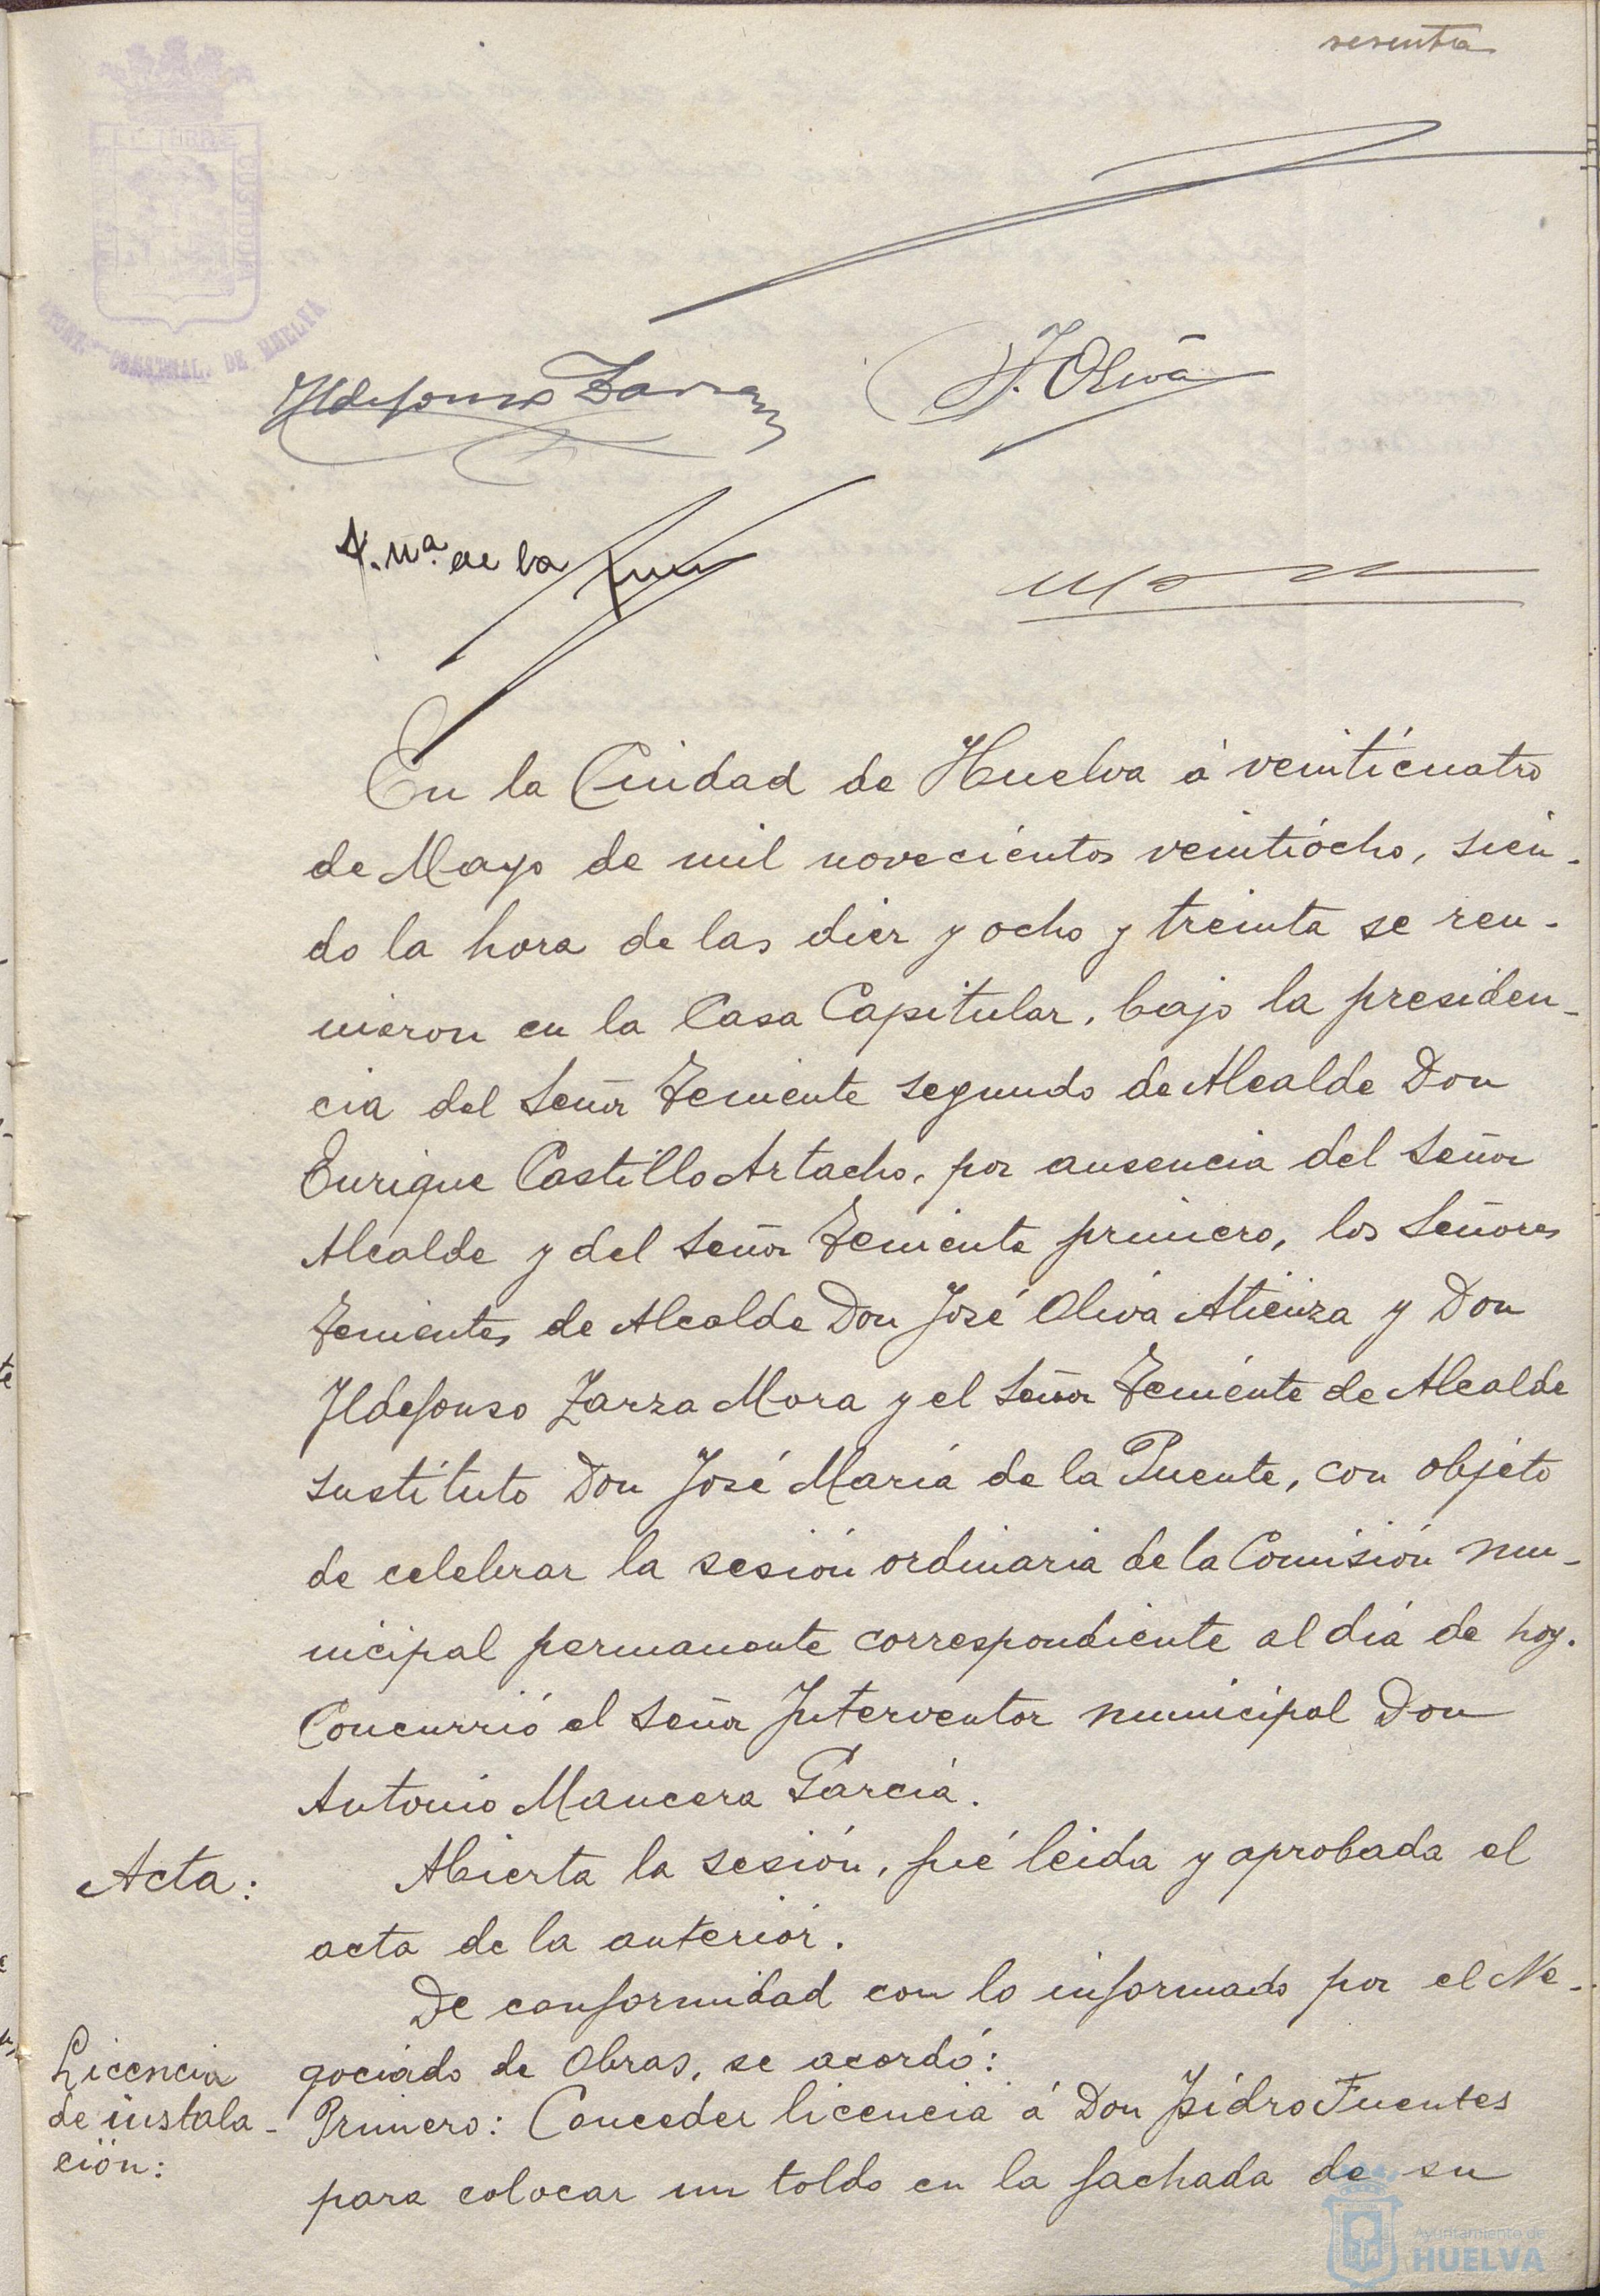 sesenta
CUSTODIA
CONSTNAL. DE HUELVA
Ildefonso Zarza
J. Oliva
J. Mª. de la
En la Ciudad de Huelva á veinticuatro
de Mayo de mil novecientos veintiocho, sien-
do la hora de las diez y ocho y treinta se reu-
nieron en la Casa Capitular, bajo la presiden-
cia del Señor Teniente segundo de Alcalde Don
Enrique Castillo Artacho, por ausencia del Señor
Alcalde y del Señor Teniente primero, los Señores
Tenientes de Alcalde Don José Oliva Atienza y Don
Ildefonso Zarza Mora y el Señor Teniente de Alcalde
sustituto Don José María de la Puente, con objeto
de celebrar la sesión ordinaria de la Comisión mu-
nicipal permanente correspondiente al día de hoy.
Concurrió el Señor Interventor municipal Don
Antonio Mancera García.
Acta:
Abierta la sesión, fué leida y aprobada el
acta de la anterior.
De conformidad con lo informado por el Ne-
gociado de Obras, se acordó:
Licencia
de instala-
ción:
Primero: Conceder licencia á Don Isidro Fuentes
para colocar un toldo en la fachada de su
Ayuntamiento de
HUELVA